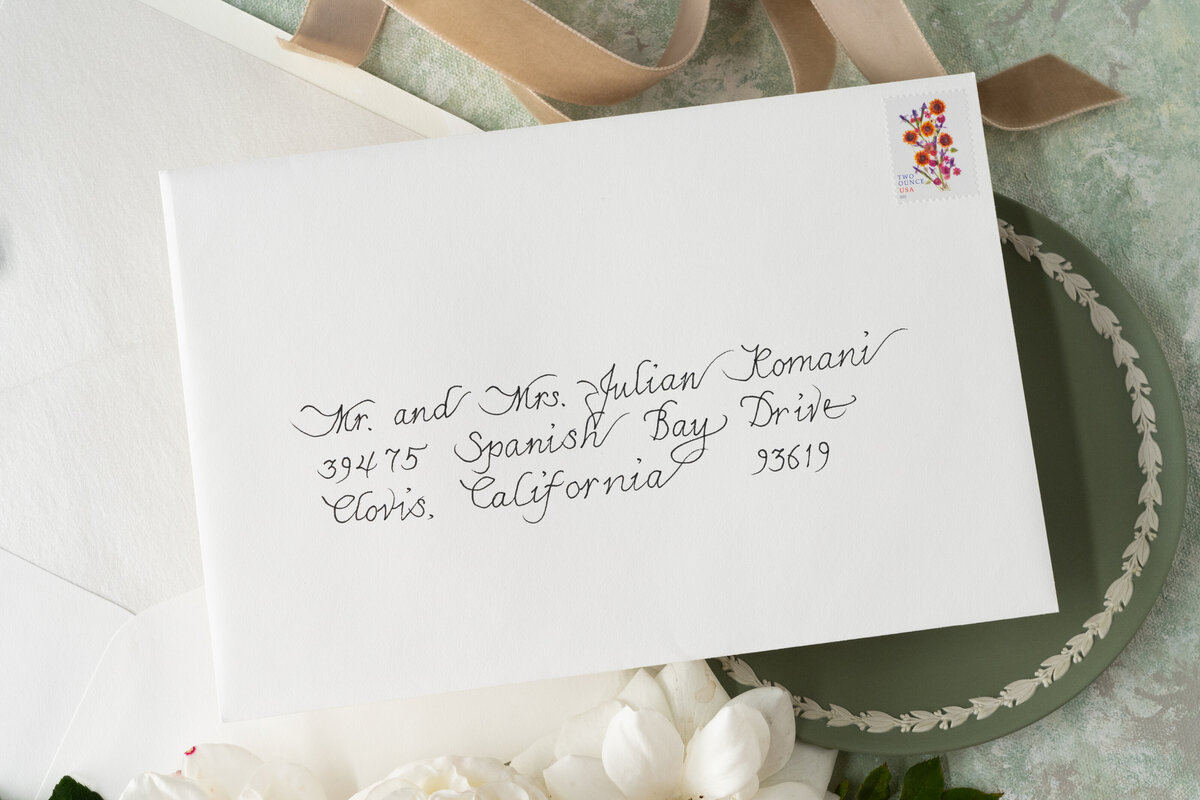 TWO
OUNCE
USA
Mr. and Mrs. Julian Romani
39475 Spanish Bay Drive
Clovis, California 93619